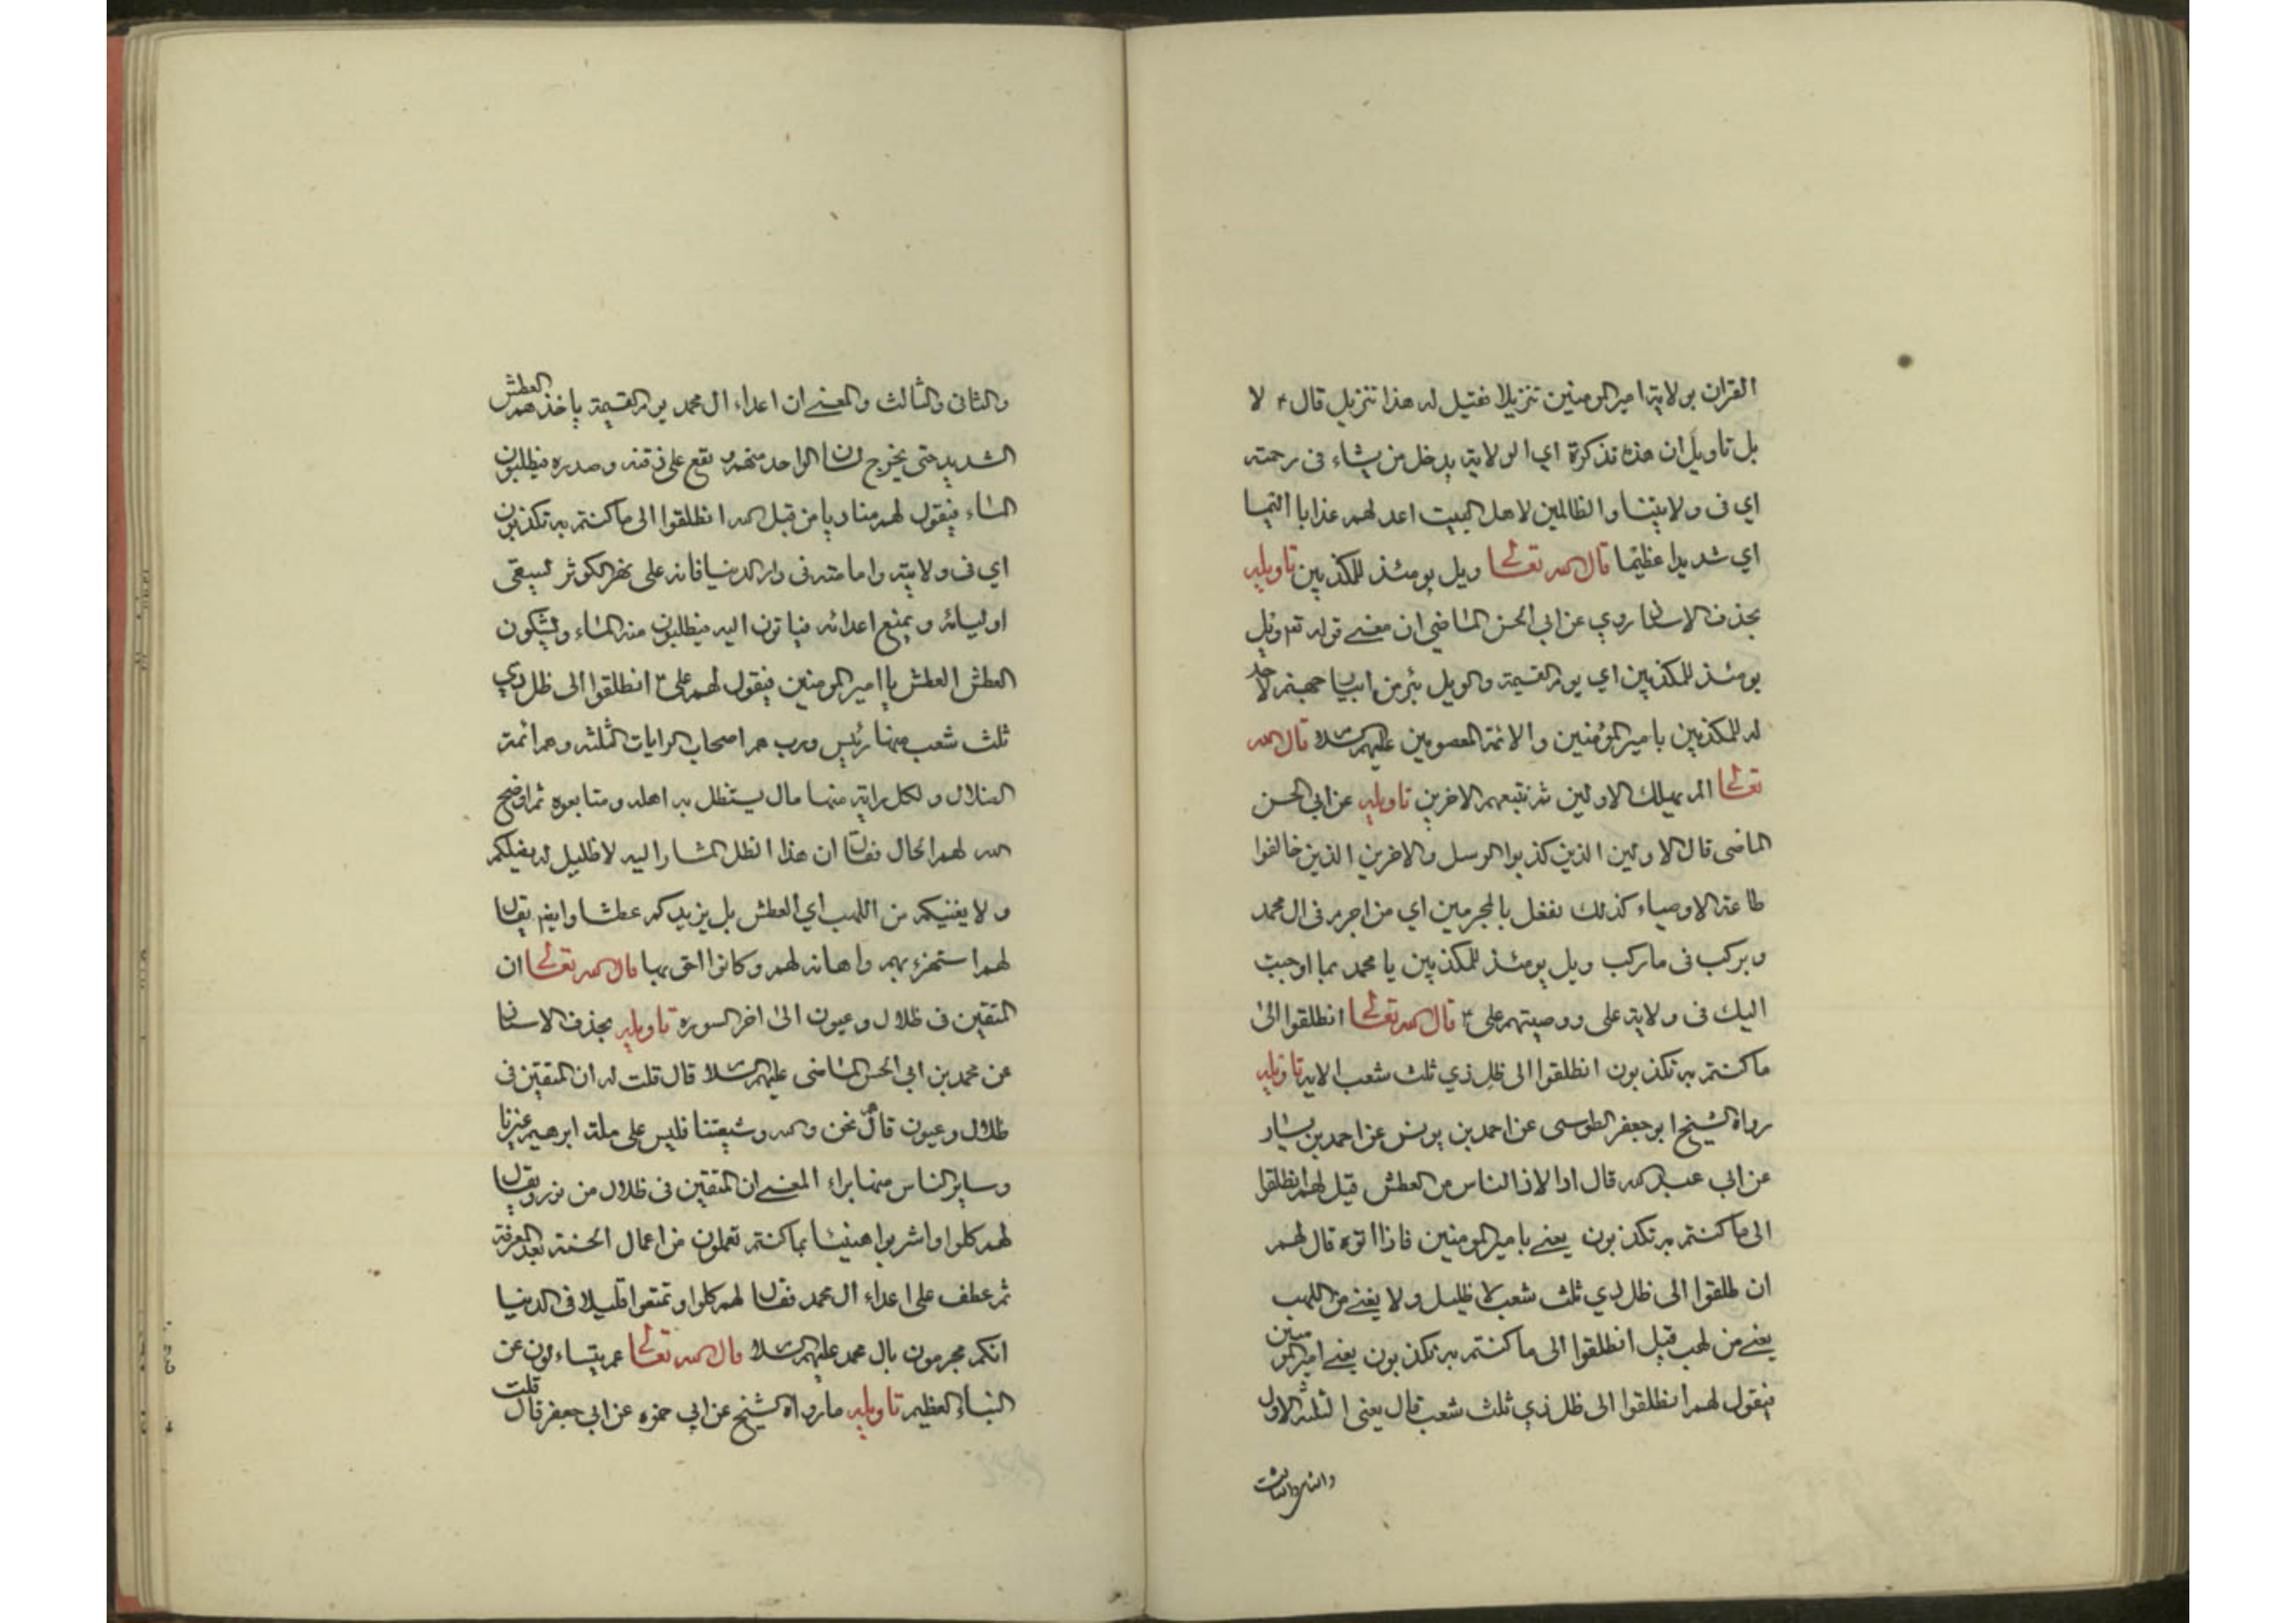 القران بولاية امير المومنين تنزيلا فقيل له هذا تنزيل قال ع لا
بل تاويل ان هذه تذكرة اي الولاية يدخل من يشاء فى رحمته
اي فى ولايتنا والظالمين لاهل البيت اعد لهم عذابا اليما
اي شديدا عظيما قال الله تعالى ويل يومئذ للمكذبين تاويله
بحذف الاسناد روي عن ابي الحسن الماضي ان معنى قوله تع ويل
يومئذ للمكذبين اي يوم القيمة والويل بئر من ابيار جهنم لاحد
له للمكذبين بامير المؤمنين والائمة المعصومين عليهم السلام قال الله
تعالى الم يهلك الاولين ثم نتبعهم الاخرين تاويله عن ابي الحسن
الماضى قال الاولين الذين كذبوا الرسل والاخرين الذين خالفوا
طاعة الاوصياء كذلك نفعل بالمجرمين اي من اجرم فى ال محمد
وبركب فى ماركب ويل يومئذ للمكذبين يا محمد بما اوحيت
اليك فى ولاية على ووصيتهم على ع قال الله تعالى انطلقوا الى
ما كنتم به تكذبون انطلقوا الى ظل ذي ثلث شعب الاية تاويله
رواه الشيخ ابو جعفر الطوسى عن احمد بن يونس عن احمد بن يسار
عن ابي عبد الله قال اذا لاذ الناس من العطش قيل لهم انطلقوا
الى ما كنتم به تكذبون يعنى بامير المومنين فاذا اتوه قال لهم
ان طلقوا الى ظل ذي ثلث شعب لا ظليل ولا يغنى من اللهب
يعنى من لهب قيل انطلقوا الى ما كنتم به تكذبون يعنى امير المومنين
فيقول لهم انطلقوا الى ظل ذي ثلث شعب قال يعنى الثلثة الاول
والثانى والثالث
والثانى والثالث والمعنى ان اعداء ال محمد يوم القيمة ياخذهم العطش
الشديد حتى يخرج لسان الواحد منهم و تقع على ذقنه وصدره فيطلبون
الماء فيقول لهم مناديا من قبل الله انطلقوا الى ما كنتم به تكذبون
اي فى ولايته وامامته فى دار الدنيا فانه على نهر الكوثر ليسقى
اوليائه ويمنع اعدائه فياتون اليه فيطلبون منه الماء ويشكون
العطش العطش يا امير المومنين فيقول لهم على ع انطلقوا الى ظل ذي
ثلث شعب منها رئيس ورب هم اصحاب الرايات الثلثة وهم ائمة
الضلال ولكل راية منها مال يستظل به اهله ومتابعوه ثم اوضح
الله لهم الحال فقال ان هذا الظل المشار اليه لا ظليل له يظلكم
ولا يغنيكم من اللهب اي العطش بل يزيدكم عطشا وايضا يقال
لهم استهزء بهم واهانه لهم وكانوا احق بها قال الله تعالى ان
المتقين فى ظلال وعيون الى اخر السوره تاويله بحذف الاسناد
عن محمد بن ابي الحسن الماضى عليهم السلام قال قلت له ان المتقين فى
ظلال وعيون قال نحن والله وشيعتنا فليس على ملة ابرهيم غيرنا
وساير الناس منها براء المعنى ان المتقين فى ظلال من نور ويقال
لهم كلوا واشربوا هنيئا بما كنتم تعملون من اعمال الحسنة بعد المعرفة
ثم عطف على اعداء ال محمد فقال لهم كلوا وتمتعوا قليلا فى الدنيا
انكم مجرمون بال محمد عليهم السلام قال الله تعالى عم يتساءلون عن
النباء العظيم تاويله ما رواه الشيخ عن ابي حمزه عن ابي جعفر قال قلت